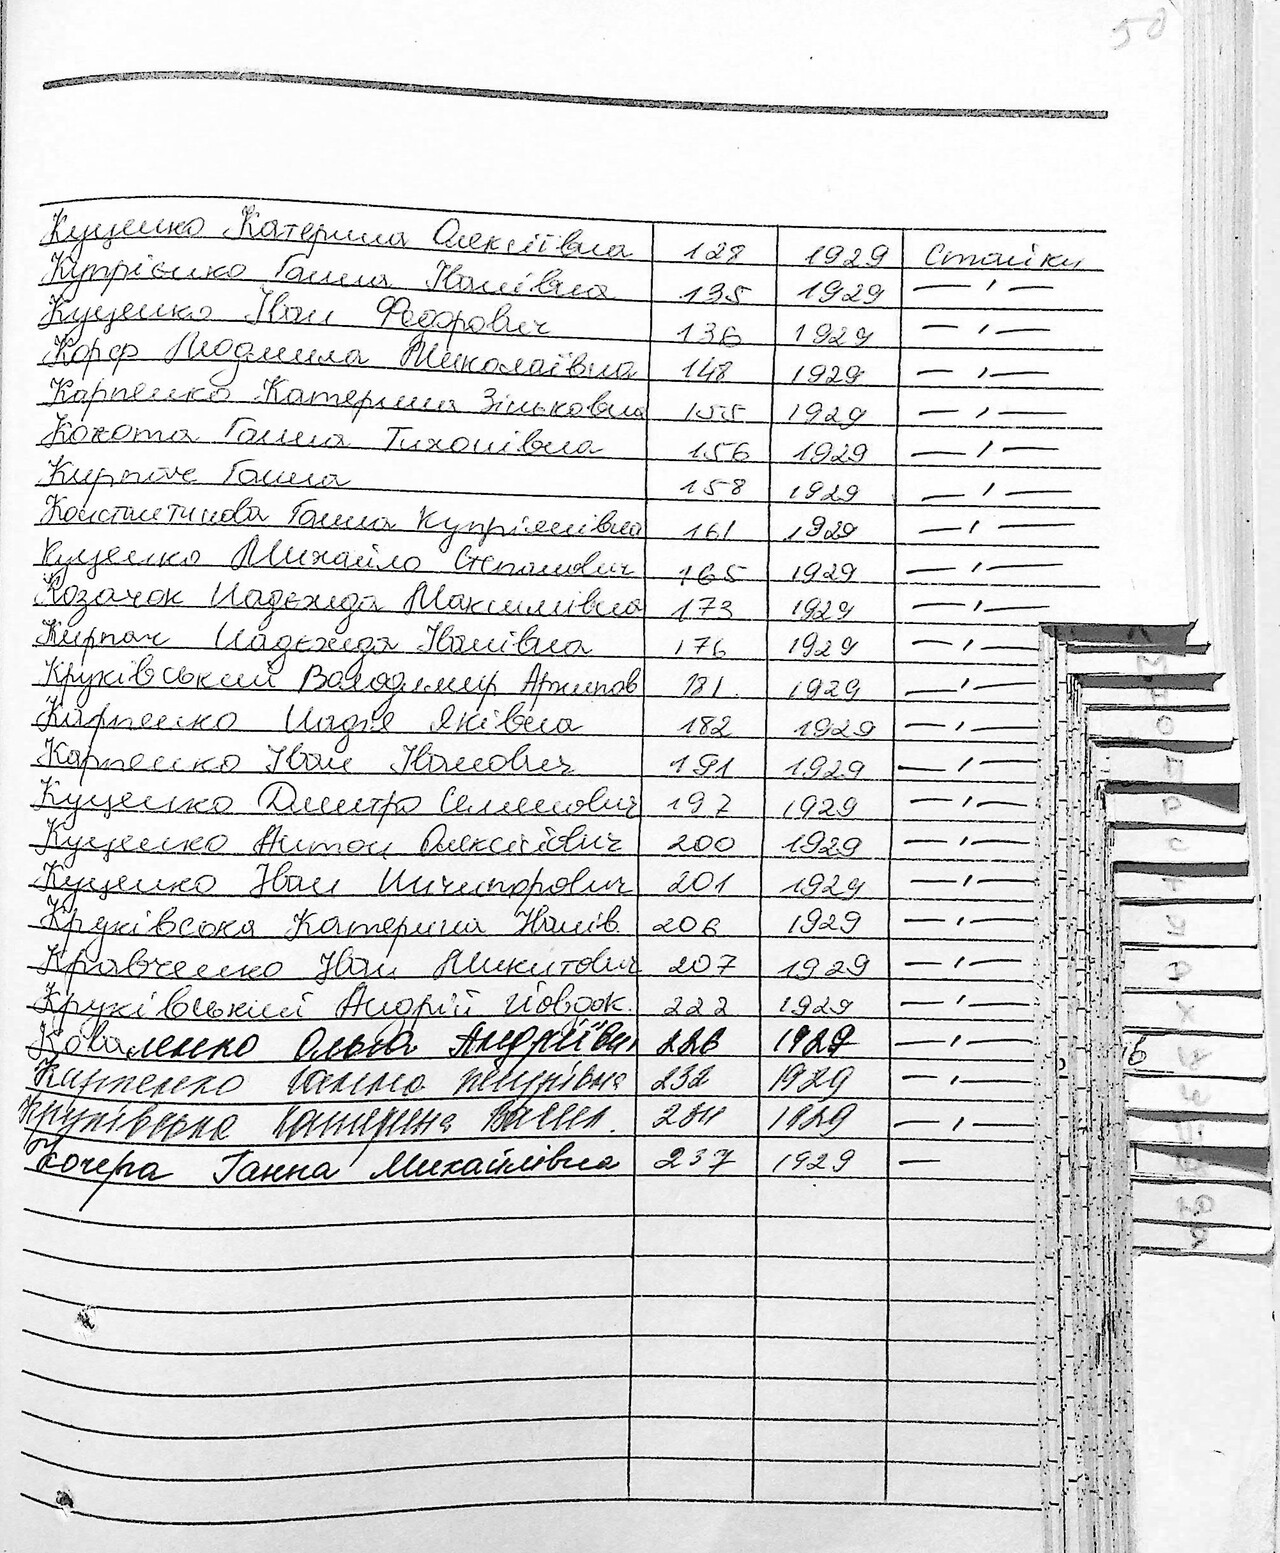 50
Куценко Катерина Олексіївна 128 1929 Стайки
Купрієнко Ганна Іванівна 135 1929 — ' —
Куценко Іван Федорович 136 1929 — ' —
Корф Людмила Миколаївна 148 1929 — ' —
Карпенко Катерина Зіньковна 155 1929 — ' —
Кохота Ганна Тихонівна 156 1929 — ' —
Кирпач Ганна 158 1929 — ' —
Константинова Ганна Купріянівна 161 1929 — ' —
Куценко Михайло Степанович 165 1929 — ' —
Козачок Надежда Максимівна 173 1929 — ' —
Кирпач Надежда Іванівна 176 1929 — ' —
Круківський Володимир Архипов 181 1929 — ' —
Карпенко Надія Яківна 182 1929 — ' —
Карпенко Іван Іванович 191 1929 — ' —
Куценко Дмитро Семенович 197 1929 — ' —
Куценко Антон Олексійович 200 1929 — ' —
Куценко Іван Ничипорович 201 1929 — ' —
Круківська Катерина Іванів. 206 1929 — ' —
Кравченко Іван Микитович 207 1929 — ' —
Круківський Андрій Йовдок. 222 1929 — ' —
Коваленко Ольга Андріївн 226 1929 — ' —
Карпенко Ганна Петрівна 232 1929 — ' —
Круківська Катерина Васил. 1929 — ' —
Кочера Ганна Михайлівна 237 1929 —